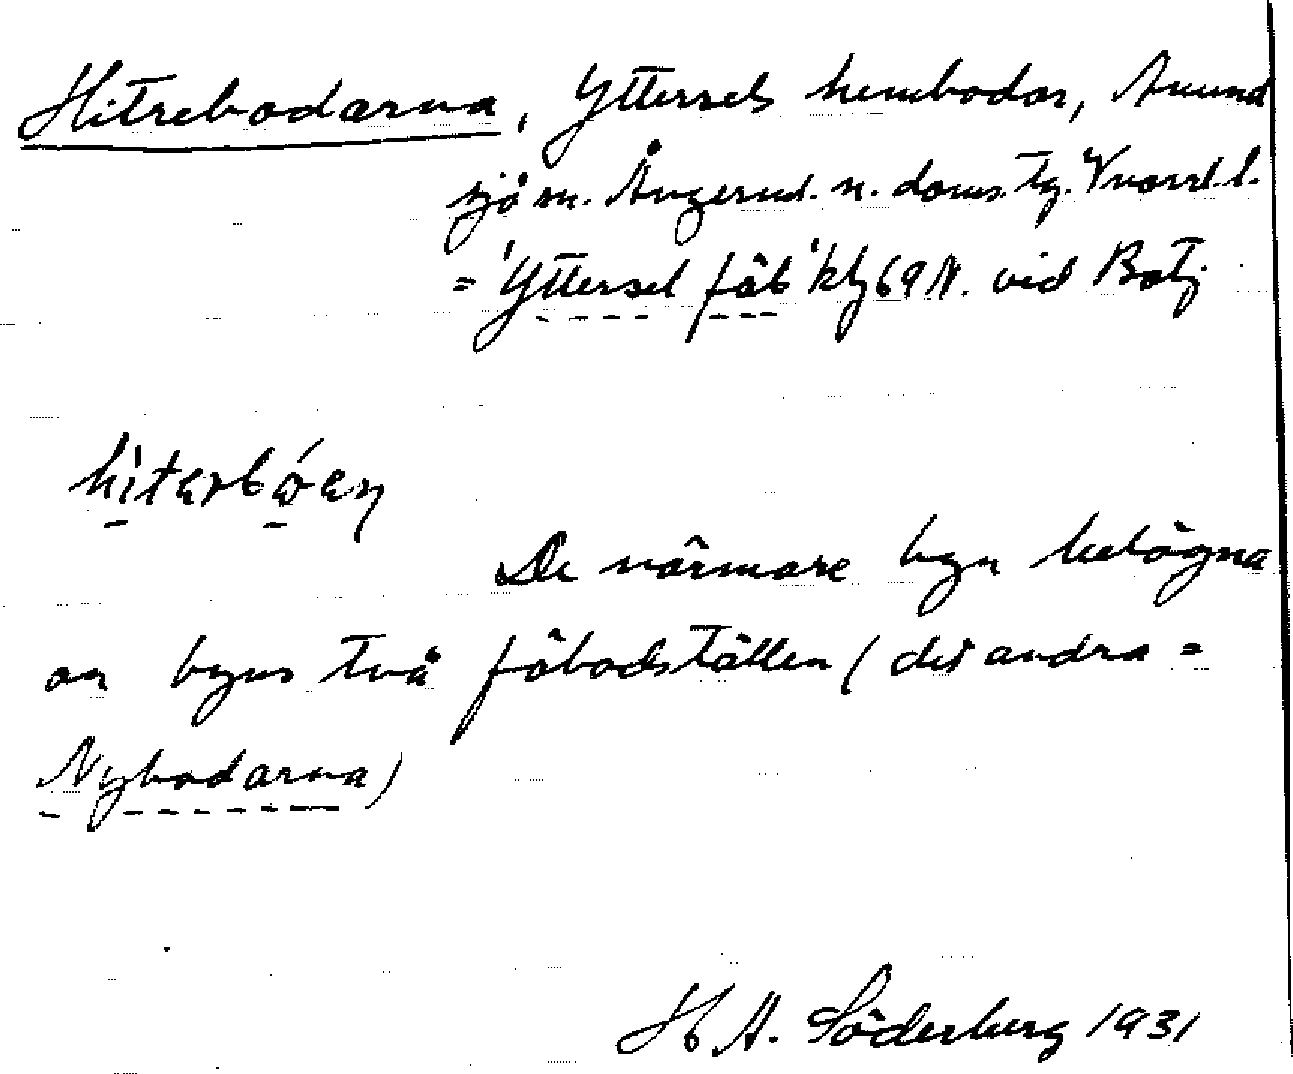 Hitrebodarna, Yttersels hembodar, Anund
sjö sn. Ångerml. n. doms. tg. Vnorrl. l.
= 'Yttersel fäb' kbl 69 N. vid Botj.
hitərbóən
De närmare byn belägna
av byns två fäbodställen (det andra =
Nybodarna)
H. A. Söderberg 1931